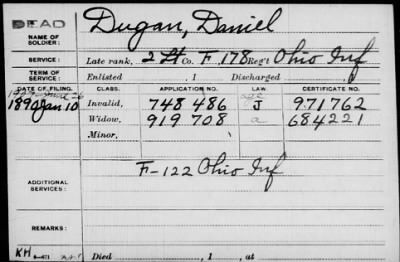 DEAD
NAME OF SOLDIER: Dugan, Daniel
SERVICE: Late rank, 2 Lt Co. F, 178 Reg't Ohio Inf
TERM OF SERVICE: Enlisted , 1 Discharged , 1
DATE OF FILING. CLASS. APPLICATION NO. LAW. CERTIFICATE NO.
1890 Jan 10 Invalid, 748 486 J 971762
Widow, 919 708 a 684221
Minor,
ADDITIONAL SERVICES: F-122 Ohio Inf
REMARKS:
KH
Died , 1 , at